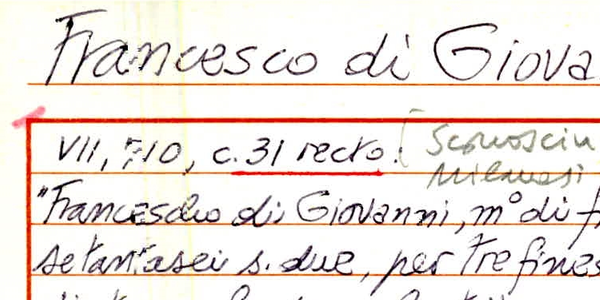 Francesco di Giova
VII, 710, c. 31 recto. [Sconosciu
Milanesi
"Francescho di Giovanni, m° di f
setantasei s. due, per tre fines